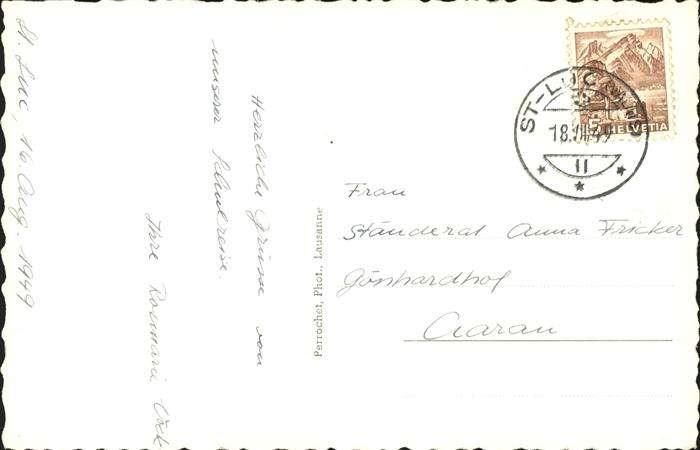 St. Luc, 16. Aug. 1949
Herzliche Grüsse von
unserer Schulreise.
Ihre Rosmarie
Perrochet, Phot., Lausanne
ST-LUC
18.VIII.49
11
5 HELVETIA
Frau
Ständerat Anna Fricker
Gönhardhof
Aarau